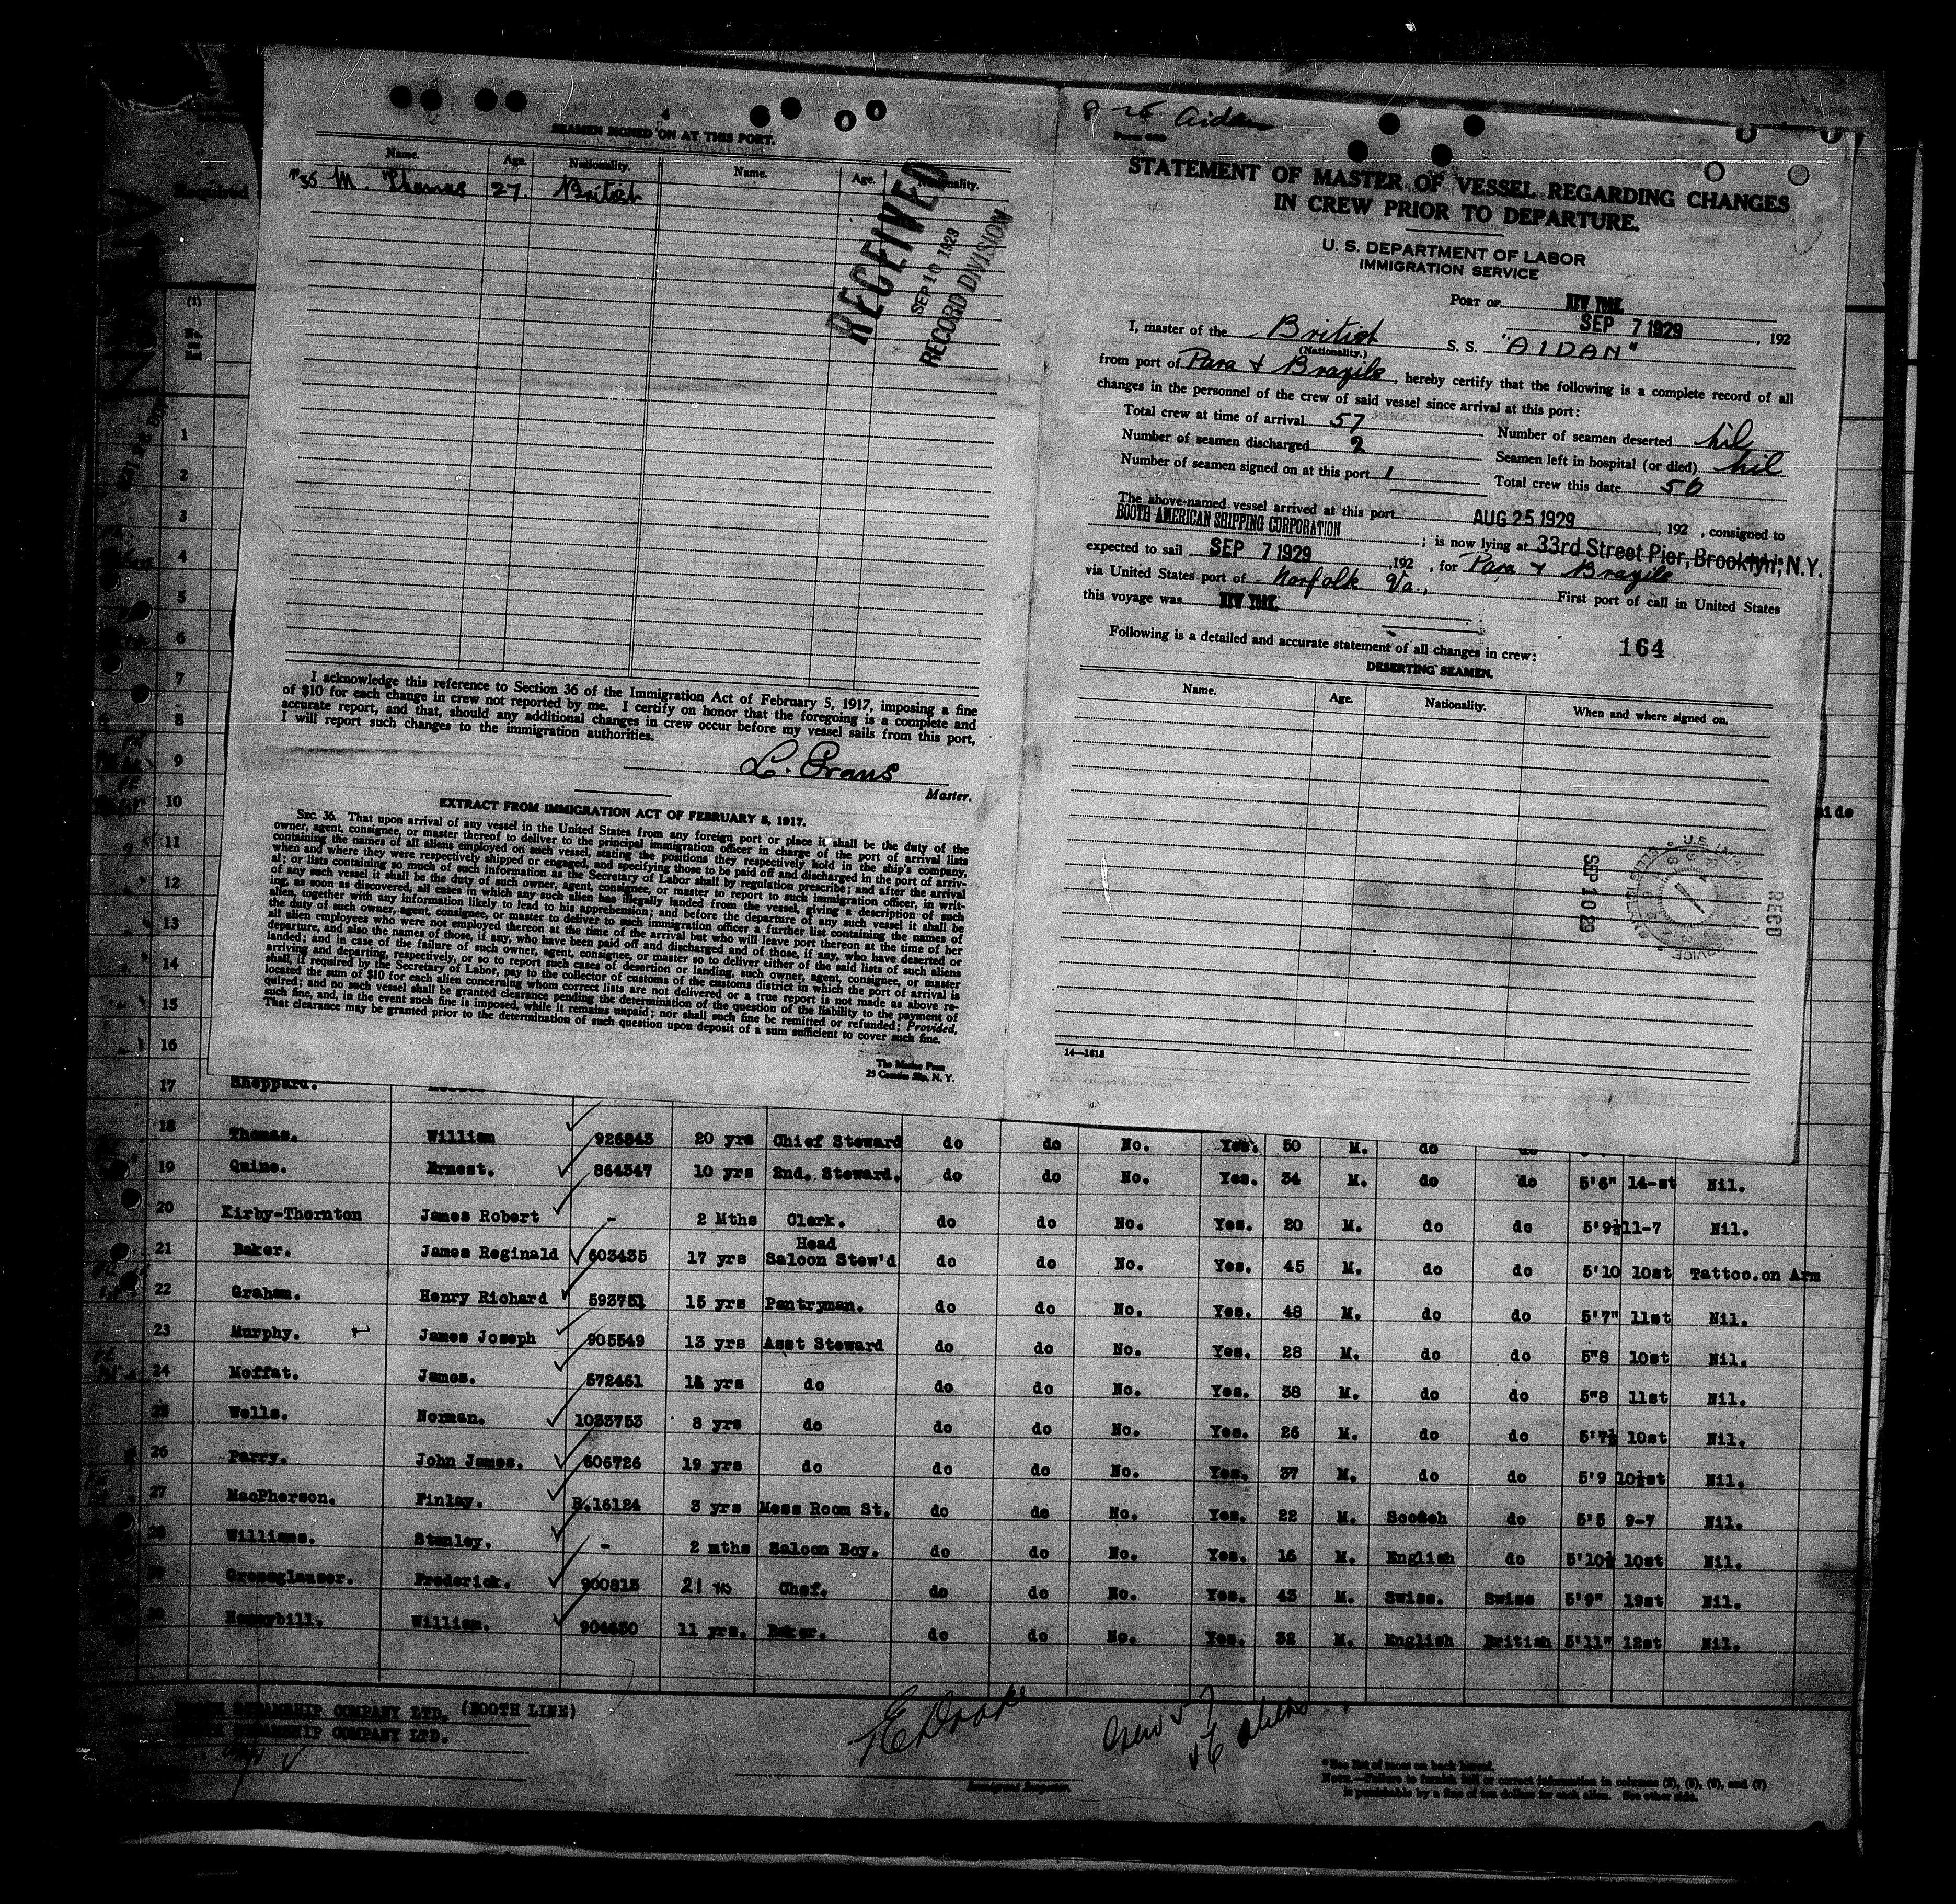 SEAMEN SIGNED ON AT THIS PORT.
Name. Age. Nationality. Name. Age. Nationality.
M. Thomas 27. British
RECEIVED
SEP 10 1929
RECORD DIVISION
I acknowledge this reference to Section 36 of the Immigration Act of February 5, 1917, imposing a fine
of $10 for each change in crew not reported by me. I certify on honor that the foregoing is a complete and
accurate report, and that, should any additional changes in crew occur before my vessel sails from this port,
I will report such changes to the immigration authorities.
L. Evans
Master.
EXTRACT FROM IMMIGRATION ACT OF FEBRUARY 5, 1917.
SEC. 36. That upon arrival of any vessel in the United States from any foreign port or place it shall be the duty of the
owner, agent, consignee, or master thereof to deliver to the principal immigration officer in charge of the port of arrival lists
containing the names of all aliens employed on such vessel, stating the positions they respectively hold in the ship's company,
when and where they were respectively shipped or engaged, and specifying those to be paid off and discharged in the port of arriv-
al; or lists containing so much of such information as the Secretary of Labor shall by regulation prescribe; and after the arrival
of any such vessel it shall be the duty of such owner, agent, consignee, or master to report to such immigration officer, in writ-
ing, as soon as discovered, all cases in which any such alien has illegally landed from the vessel, giving a description of such
alien, together with any information likely to lead to his apprehension; and before the departure of any such vessel it shall be
the duty of such owner, agent, consignee, or master to deliver to such immigration officer a further list containing the names of
all alien employees who were not employed thereon at the time of the arrival but who will leave port thereon at the time of her
departure, and also the names of those, if any, who have been paid off and discharged and of those, if any, who have deserted or
landed; and in case of the failure of such owner, agent, consignee, or master so to deliver either of the said lists of such aliens
arriving and departing, respectively, or so to report such cases of desertion or landing, such owner, agent, consignee, or master
shall, if required by the Secretary of Labor, pay to the collector of customs of the customs district in which the port of arrival is
located the sum of $10 for each alien concerning whom correct lists are not delivered or a true report is not made as above re-
quired; and no such vessel shall be granted clearance pending the determination of the question of the liability to the payment of
such fine, and, in the event such fine is imposed, while it remains unpaid; nor shall such fine be remitted or refunded; Provided,
That clearance may be granted prior to the determination of such question upon deposit of a sum sufficient to cover such fine.
25 Coenties Slip, N. Y.
8-25 Aidan
Form 680
STATEMENT OF MASTER OF VESSEL REGARDING CHANGES
IN CREW PRIOR TO DEPARTURE.
U. S. DEPARTMENT OF LABOR
IMMIGRATION SERVICE
PORT OF NEW YORK.
SEP 7 1929, 192
I, master of the British S. S. "AIDAN"
(Nationality.)
from port of Para & Brazils, hereby certify that the following is a complete record of all
changes in the personnel of the crew of said vessel since arrival at this port:
Total crew at time of arrival 57 Number of seamen deserted nil
Number of seamen discharged 2 Seamen left in hospital (or died) nil
Number of seamen signed on at this port 1 Total crew this date 56
The above-named vessel arrived at this port AUG 25 1929, 192 , consigned to
BOOTH AMERICAN SHIPPING CORPORATION; is now lying at 33rd Street Pier, Brooklyn, N.Y.
expected to sail SEP 7 1929, 192 , for Para & Brazils
via United States port of Norfolk Va., First port of call in United States
this voyage was NEW YORK.
Following is a detailed and accurate statement of all changes in crew: 164
DESERTING SEAMEN.
Name. Age. Nationality. When and where signed on.
SEP 10 29
RECD
14—1618
Required
(1)
No.
on
list
1
2
3
4
5
6
7
8
9
10
11
12
13
14
15
16
17 Sheppard.
18 Thomas. William 926843 20 yrs Chief Steward do do No. Yes. 50 M. do do
19 Quine. Ernest. 864347 10 yrs 2nd. Steward. do do No. Yes. 34 M. do do 5'6" 14-st Nil.
20 Kirby-Thornton James Robert - 2 Mths Clerk. do do No. Yes. 20 M. do do 5'9½ 11-7 Nil.
21 Baker. James Reginald 603435 17 yrs Head Saloon Stew'd do do No. Yes. 45 M. do do 5'10 10st Tattoo.on Arm
22 Graham. Henry Richard 593751 15 yrs Pantryman. do do No. Yes. 48 M. do do 5'7" 11st Nil.
23 Murphy. James Joseph 905549 13 yrs Asst Steward do do No. Yes. 28 M. do do 5"8 10st Nil.
24 Moffat. James. 572461 yrs do do do No. Yes. 38 M. do do 5"8 11st Nil.
25 Wells. Norman. 1033753 8 yrs do do do No. Yes. 26 M. do do 5'7½ 10st Nil.
26 Parry. John James. 606726 19 yrs do do do No. Yes. 37 M. do do 5'9 10½st Nil.
27 MacPherson. Finlay. R.16124 3 yrs Mess Room St. do do No. Yes. 22 M. Scotch do 5'5 9-7 Nil.
28 Williams. Stanley. - 2 mths Saloon Boy. do do No. Yes. 16 M. English do 5'10½ 10st Nil.
29 Grossglauser. Frederick. 900815 21 Chef. do do No. Yes. 43 M. Swiss. Swiss 5'9" 19st Nil.
30 Honeybill. William. 904430 11 yrs. Baker. do do No. Yes. 32 M. English British 5'11" 12st Nil.
STEAMSHIP COMPANY LTD. (BOOTH LINE)
STEAMSHIP COMPANY LTD.
Immigrant Inspector.
* See list of races on back hereof.
is punishable by a fine of ten dollars for each alien. See other side.